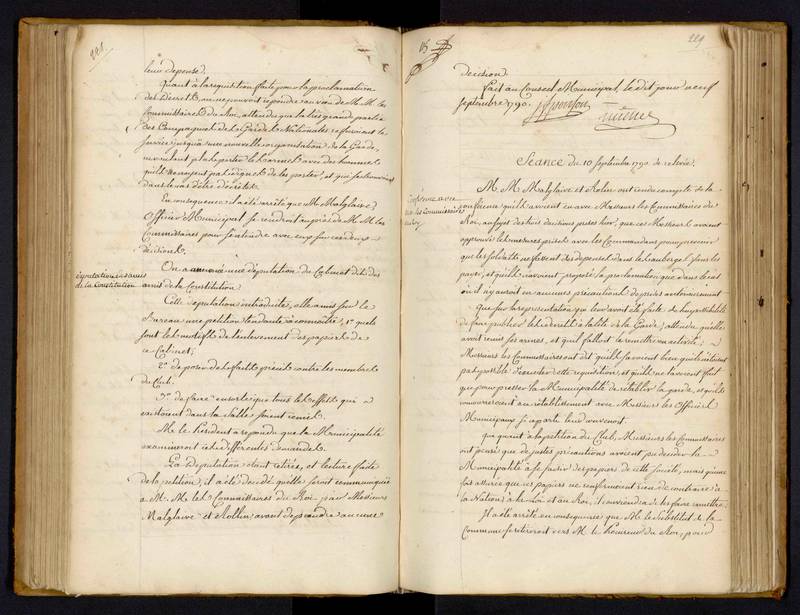 221.
leur depense.
Quant à la requisition faite pour la proclamation
des Décrets, on ne pouvoit repondre au vœu de M. M. les
Commissaires du Roi, attendu que la très grande partie
des Compagnies des Gardes Nationales refusoient le
service jusqu'à une nouvelle organisation de la Garde,
ne voulant plus porter les armes avec des hommes
qu'ils ne croyent pas dignes de les porter, et qui se trouvoient
dans le cas d'être
En consequence il a été arrêté que M. Malglaive
Officier Municipal se rendroit auprès de M. M. les
Commissaires pour s'entendre avec eux sur ces deux
décisions.
députation des amis
de la Constitution
On a annoncé une députation du Cabinet dit des
amis de la Constitution
Cette députation introduite, elle a mis sur le
bureau une petition tendante à connoître, 1°. quels
sont les motifs de l'enlevement des papiers de
ce Cabinet;
2°. de poser des faits précis contre les membres
du Club.
3°. de faire ensorte que tous les effets qui
existoient dans la Salle soient remis.
Mr. le Président a repondu que la Municipalité
examineroit ces differentes demandes.
La Députation étant retirée, et lecture faite
de la petition, il a été décidé qu'elle seroit communiquée
à M. M. les Commissaires du Roi par Messieurs
Malglaive et Rollin avant de prendre aucune
221
décision.
Fait au Conseil Municipal, ledit jour neuf
Septembre 1790.
Séance du 10 Septembre 1790 de relevée.
Conférence avec
les Commissaires
du Roy
M. M. Malglaive et Rolin ont rendu compte de la
conférence qu'ils avoient eu avec Messieurs les Commissaires du
Roi, au sujet des trois décisions prises hier, que ces Messieurs avoient
approuvé les mesures prises avec les Commandans pour prevenir
que les soldats ne fissent des depenses dans les auberges sans les
payer, et qu'ils n'avoient proposé la proclamation que dans le cas
où il n'y auroit eu aucunes précautions de prises antérieurement
Que sur la representation qui leur avoit été faite de l'impossibilité
de faire publier les décrets à la tête de la Garde, attendu qu'elle
avoit remis ses armes, et qu'il falloit la remettre en activité;
Messieurs les Commissaires ont dit qu'ils savoient bien qu'il n'étoit
pas possible d'executer cette requisition, et qu'ils ne l'avoient fait
que pour presser la Municipalité de rétablir la garde, et qu'ils
concourreroient au rétablissement avec Messieurs les Officiers
Municipaux
que quant à la petition du Club, Messieurs les Commissaires
ont pensé que de justes précautions avoient pu décider la
Municipalité à se saisir des papiers de cette société, mais qu'une
fois assurée que ces papiers ne renferment rien de contraire à
la Nation, à la Loi et au Roi, il conviendra de les faire remettre.
Il a été arrêté en conséquence que Mr. le Substitut de la
Commune se retireroit vers M. le Procureur du Roi, pour